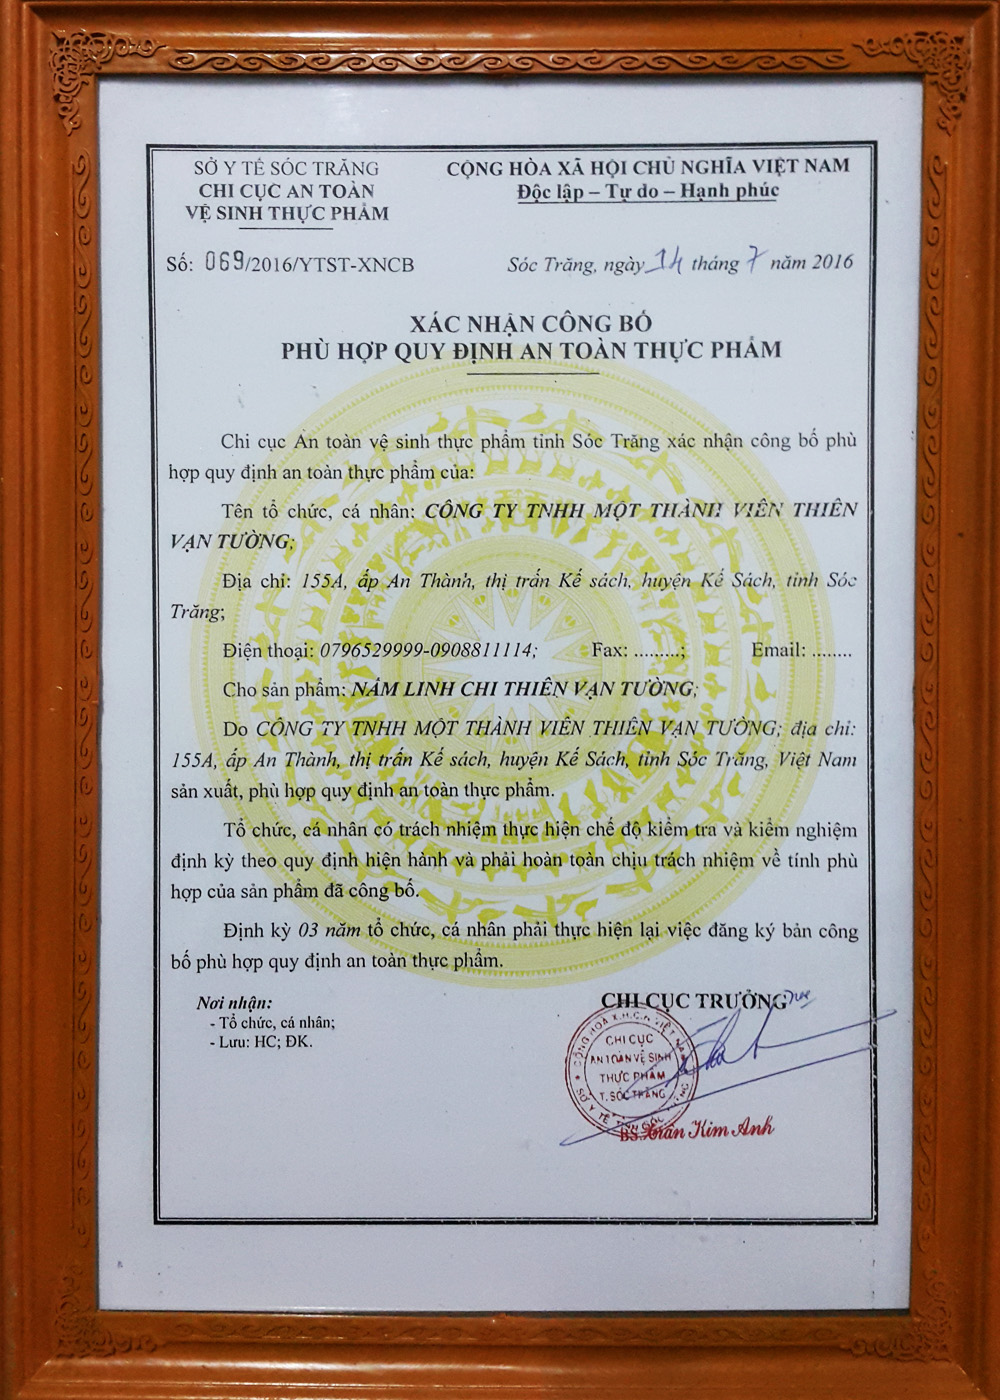 SỞ Y TẾ SÓC TRĂNG
CHI CỤC AN TOÀN
VỆ SINH THỰC PHẨM
CỘNG HÒA XÃ HỘI CHỦ NGHĨA VIỆT NAM
Độc lập – Tự do – Hạnh phúc
Số: 069/2016/YTST-XNCB
Sóc Trăng, ngày 14 tháng 7 năm 2016
XÁC NHẬN CÔNG BỐ
PHÙ HỢP QUY ĐỊNH AN TOÀN THỰC PHẨM
Chi cục An toàn vệ sinh thực phẩm tỉnh Sóc Trăng xác nhận công bố phù
hợp quy định an toàn thực phẩm của:
Tên tổ chức, cá nhân: CÔNG TY TNHH MỘT THÀNH VIÊN THIÊN
VẠN TƯỜNG;
Địa chỉ: 155A, ấp An Thành, thị trấn Kế sách, huyện Kế Sách, tỉnh Sóc
Trăng;
Điện thoại: 0796529999-0908811114; Fax: .........; Email: ........
Cho sản phẩm: NẤM LINH CHI THIÊN VẠN TƯỜNG;
Do CÔNG TY TNHH MỘT THÀNH VIÊN THIÊN VẠN TƯỜNG; địa chỉ:
155A, ấp An Thành, thị trấn Kế sách, huyện Kế Sách, tỉnh Sóc Trăng, Việt Nam
sản xuất, phù hợp quy định an toàn thực phẩm.
Tổ chức, cá nhân có trách nhiệm thực hiện chế độ kiểm tra và kiểm nghiệm
định kỳ theo quy định hiện hành và phải hoàn toàn chịu trách nhiệm về tính phù
hợp của sản phẩm đã công bố.
Định kỳ 03 năm tổ chức, cá nhân phải thực hiện lại việc đăng ký bản công
bố phù hợp quy định an toàn thực phẩm.
Nơi nhận:
- Tổ chức, cá nhân;
- Lưu: HC; ĐK.
CHI CỤC TRƯỞNG
CỘNG HÒA X.H.C.N VIỆT NAM
CHI CỤC
AN TOÀN VỆ SINH
THỰC PHẨM
T. SÓC TRĂNG
SỞ Y TẾ TỈNH SÓC TRĂNG
BS. Trần Kim Anh